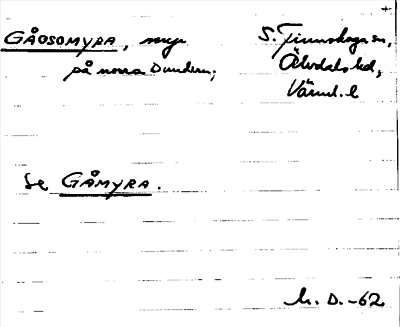 GÅOSOMYRA, myr
på norra Dundern;
S. Finnskoga sn,
Älvdals hd,
Värml. l
Se GÅMYRA.
M. D. -62